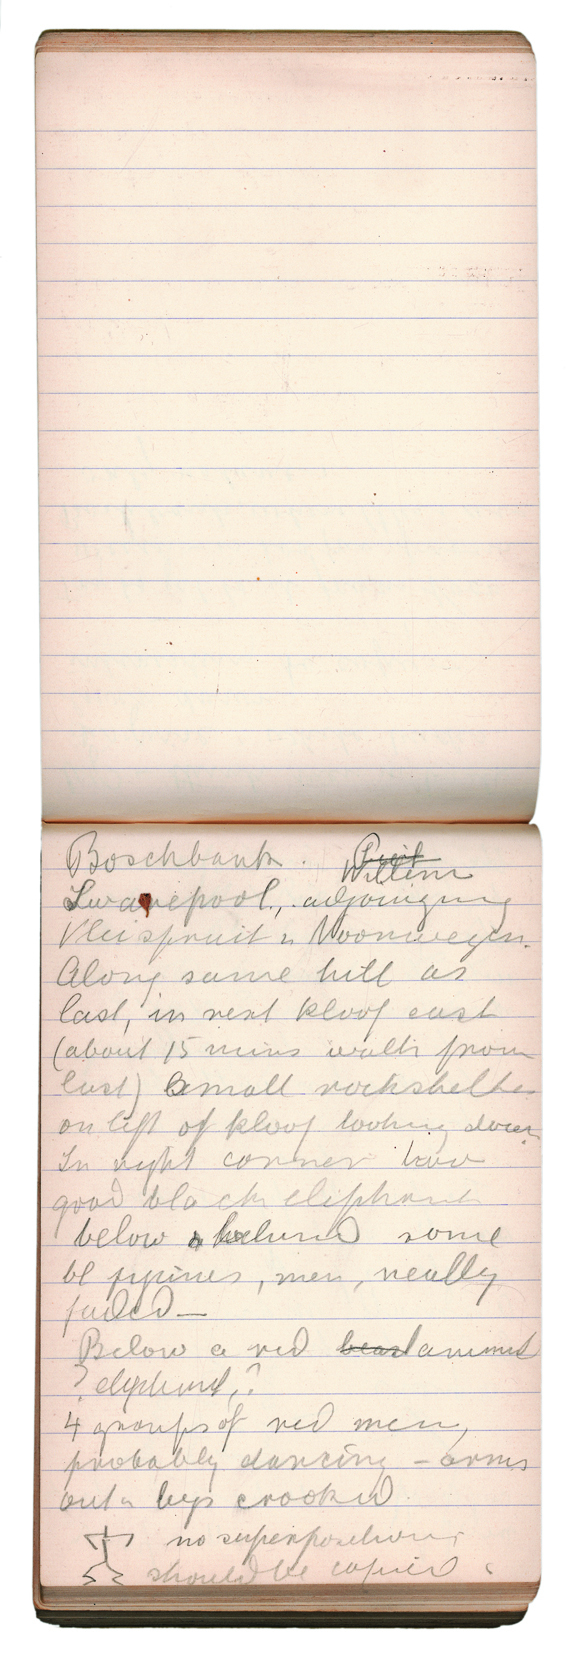 Boschbank. Willem
Swanepoel, adjoining
Vleispruit & Noorwegen.
Along same hill as
last, in next kloof east
(about 15 mins walk from
last) Small rockshelter
on left of kloof looking down
In right corner two
good black elephants
below & behind some
bl figures, men, really
faded —
Below a red beast animal
? elephant, ?
4 groups of red men,
probably dancing – arms
out & legs crooked.
no superpositions
should be copied.